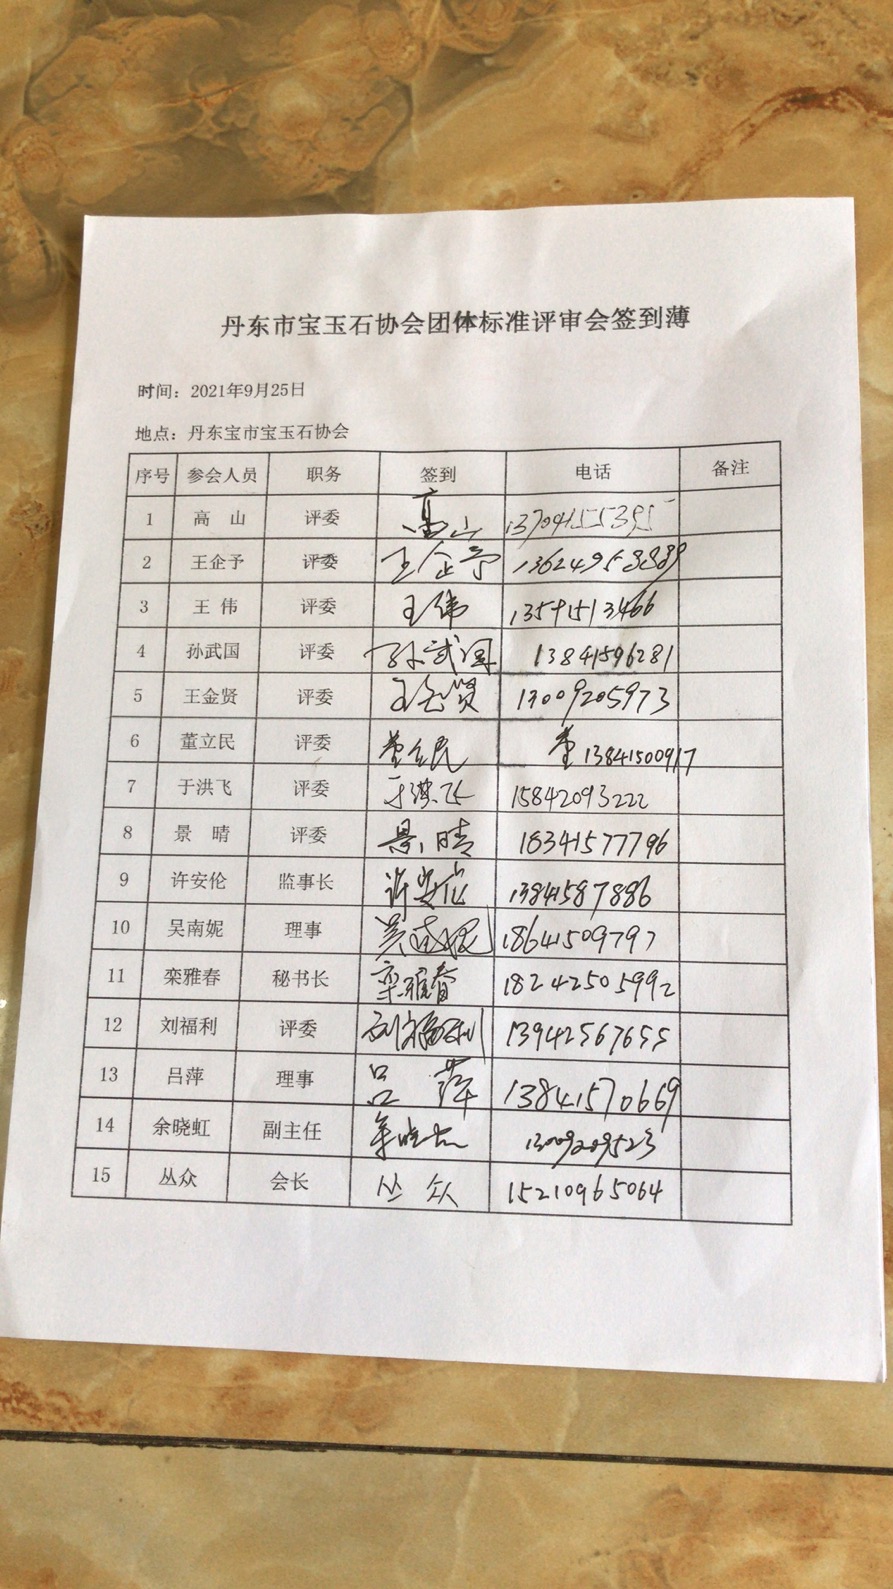 丹东市宝玉石协会团体标准评审会签到薄
时间：2021年9月25日
地点：丹东宝市宝玉石协会
序号 参会人员 职务 签到 电话 备注
1 高 山 评委 高山 13704155395
2 王企予 评委 王企予 13624958889
3 王 伟 评委 王伟 13591513466
4 孙武国 评委 孙武国 13841596281
5 王金贤 评委 王金贤 13009205973
6 董立民 评委 董立民 董 13841500917
7 于洪飞 评委 于洪飞 15842093222
8 景 晴 评委 景晴 18341577796
9 许安伦 监事长 许安伦 13841587886
10 吴南妮 理事 吴南妮 18641509797
11 栾雅春 秘书长 栾雅春 18242505992
12 刘福利 评委 刘福利 13942567655
13 吕萍 理事 吕萍 13841570669
14 余晓虹 副主任 余晓虹 13009209523
15 丛众 会长 丛众 15210965064